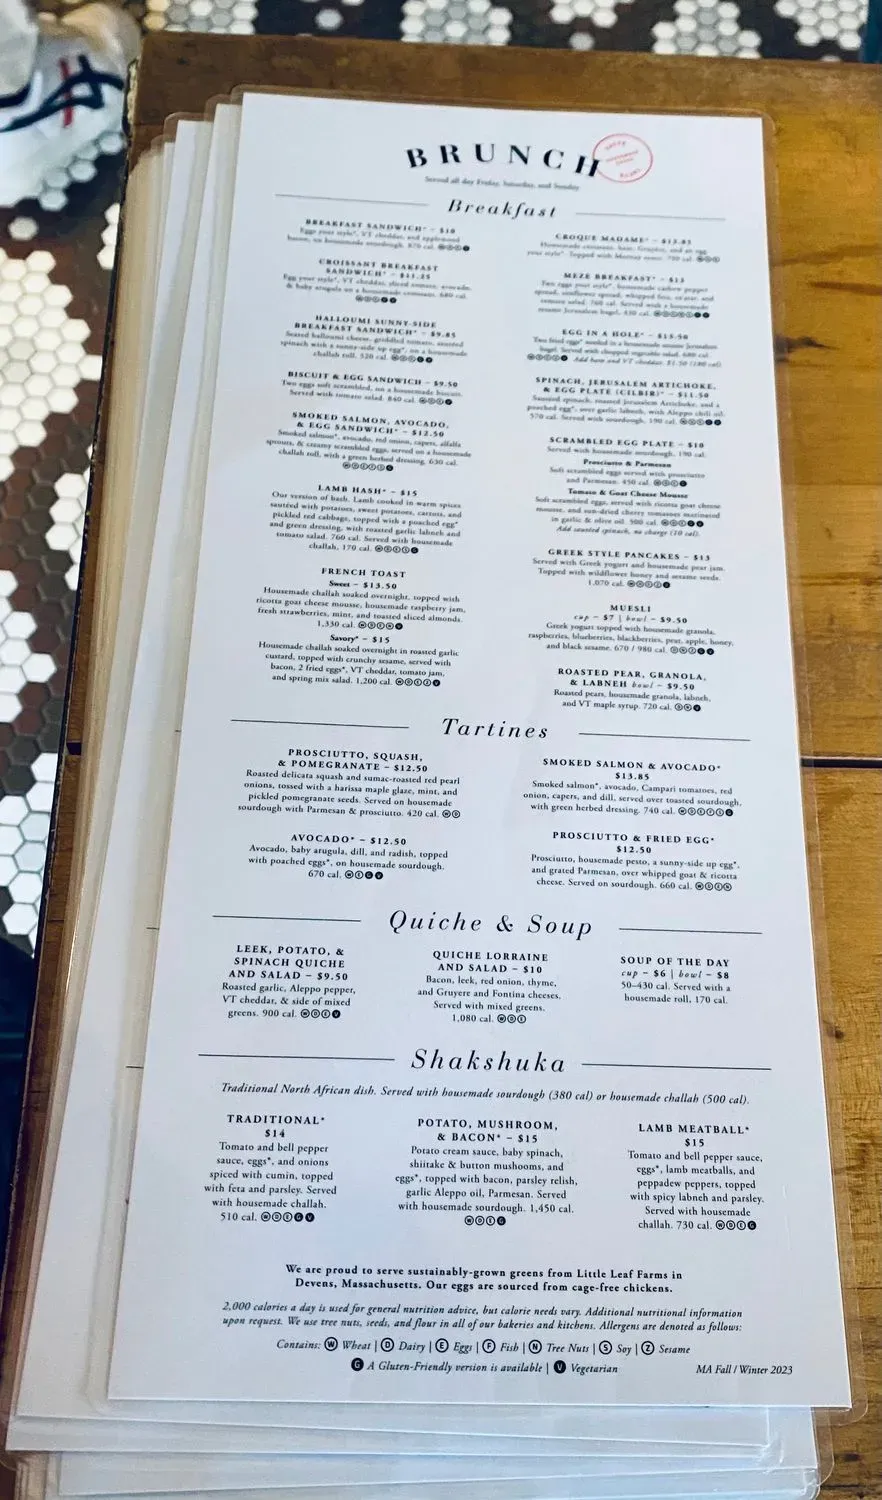 BRUNCH
Served all day Friday, Saturday, and Sunday
Breakfast
BREAKFAST SANDWICH* – $10
Eggs your style*, VT cheddar, and applewood
bacon, on housemade sourdough. 870 cal.
CROISSANT BREAKFAST
SANDWICH* – $11.25
Egg your style*, VT cheddar, sliced tomato, avocado,
& baby arugula on a housemade croissant. 680 cal.
HALLOUMI SUNNY-SIDE
BREAKFAST SANDWICH* – $9.85
Seared halloumi cheese, griddled tomato, sautéed
spinach with a sunny-side up egg*, on a housemade
challah roll. 520 cal.
BISCUIT & EGG SANDWICH – $9.50
Two eggs soft scrambled, on a housemade biscuit.
Served with tomato salad. 840 cal.
SMOKED SALMON, AVOCADO,
& EGG SANDWICH* – $12.50
Smoked salmon*, avocado, red onion, capers, alfalfa
sprouts, & creamy scrambled eggs, served on a housemade
challah roll, with a green herbed dressing. 630 cal.
LAMB HASH* – $15
Our version of hash. Lamb cooked in warm spices
sautéed with potatoes, sweet potatoes, carrots, and
pickled red cabbage, topped with a poached egg*
and green dressing, with roasted garlic labneh and
tomato salad. 760 cal. Served with housemade
challah, 170 cal.
FRENCH TOAST
Sweet – $13.50
Housemade challah soaked overnight, topped with
ricotta goat cheese mousse, housemade raspberry jam,
fresh strawberries, mint, and toasted sliced almonds.
1,330 cal.
Savory* – $15
Housemade challah soaked overnight in roasted garlic
custard, topped with crunchy sesame, served with
bacon, 2 fried eggs*, VT cheddar, tomato jam,
and spring mix salad. 1,200 cal.
CROQUE MADAME* – $13.85
Housemade croissant, ham, Gruyère, and an egg
your style*. Topped with Mornay sauce. 790 cal.
MEZE BREAKFAST* – $13
Two eggs your style*, housemade cashew pepper
spread, sunflower spread, whipped feta, za'atar, and
tomato salad. 760 cal. Served with a housemade
sesame Jerusalem bagel, 430 cal.
EGG IN A HOLE* – $13.50
Two fried eggs* nestled in a housemade sesame Jerusalem
bagel. Served with chopped vegetable salad. 680 cal.
Add ham and VT cheddar, $1.50 (180 cal)
SPINACH, JERUSALEM ARTICHOKE,
& EGG PLATE (CILBIR)* – $11.50
Sautéed spinach, roasted Jerusalem Artichoke, and a
poached egg*, over garlic labneh, with Aleppo chili oil.
570 cal. Served with sourdough, 190 cal.
SCRAMBLED EGG PLATE – $10
Served with housemade sourdough, 190 cal.
Prosciutto & Parmesan
Soft scrambled eggs served with prosciutto
and Parmesan. 450 cal.
Tomato & Goat Cheese Mousse
Soft scrambled eggs, served with ricotta goat cheese
mousse, and sun-dried cherry tomatoes marinated
in garlic & olive oil. 500 cal.
Add sautéed spinach, no charge (10 cal).
GREEK STYLE PANCAKES – $13
Served with Greek yogurt and housemade pear jam.
Topped with wildflower honey and sesame seeds.
1,070 cal.
MUESLI
cup – $7 | bowl – $9.50
Greek yogurt topped with housemade granola,
raspberries, blueberries, blackberries, pear, apple, honey,
and black sesame. 670 / 980 cal.
ROASTED PEAR, GRANOLA,
& LABNEH bowl – $9.50
Roasted pears, housemade granola, labneh,
and VT maple syrup. 720 cal.
Tartines
PROSCIUTTO, SQUASH,
& POMEGRANATE – $12.50
Roasted delicata squash and sumac-roasted red pearl
onions, tossed with a harissa maple glaze, mint, and
pickled pomegranate seeds. Served on housemade
sourdough with Parmesan & prosciutto. 420 cal. Ⓦ Ⓓ
AVOCADO* – $12.50
Avocado, baby arugula, dill, and radish, topped
with poached eggs*, on housemade sourdough.
670 cal. Ⓦ Ⓔ G V
SMOKED SALMON & AVOCADO*
$13.85
Smoked salmon*, avocado, Campari tomatoes, red
onion, capers, and dill, served over toasted sourdough,
with green herbed dressing. 740 cal.
PROSCIUTTO & FRIED EGG*
$12.50
Prosciutto, housemade pesto, a sunny-side up egg*,
and grated Parmesan, over whipped goat & ricotta
cheese. Served on sourdough. 660 cal. Ⓦ Ⓓ Ⓔ Ⓝ
Quiche & Soup
LEEK, POTATO, &
SPINACH QUICHE
AND SALAD – $9.50
Roasted garlic, Aleppo pepper,
VT cheddar, & side of mixed
greens. 900 cal. Ⓦ Ⓓ Ⓔ V
QUICHE LORRAINE
AND SALAD – $10
Bacon, leek, red onion, thyme,
and Gruyere and Fontina cheeses.
Served with mixed greens.
1,080 cal. Ⓦ Ⓓ Ⓔ
SOUP OF THE DAY
cup – $6 | bowl – $8
50–430 cal. Served with a
housemade roll, 170 cal.
Shakshuka
Traditional North African dish. Served with housemade sourdough (380 cal) or housemade challah (500 cal).
TRADITIONAL*
$14
Tomato and bell pepper
sauce, eggs*, and onions
spiced with cumin, topped
with feta and parsley. Served
with housemade challah.
510 cal. Ⓦ Ⓓ Ⓔ G V
POTATO, MUSHROOM,
& BACON* – $15
Potato cream sauce, baby spinach,
shiitake & button mushooms, and
eggs*, topped with bacon, parsley relish,
garlic Aleppo oil, Parmesan. Served
with housemade sourdough. 1,450 cal.
Ⓦ Ⓓ Ⓔ G
LAMB MEATBALL*
$15
Tomato and bell pepper sauce,
eggs*, lamb meatballs, and
peppadew peppers, topped
with spicy labneh and parsley.
Served with housemade
challah. 730 cal. Ⓦ Ⓓ Ⓔ G
We are proud to serve sustainably-grown greens from Little Leaf Farms in
Devens, Massachusetts. Our eggs are sourced from cage-free chickens.
2,000 calories a day is used for general nutrition advice, but calorie needs vary. Additional nutritional information
upon request. We use tree nuts, seeds, and flour in all of our bakeries and kitchens. Allergens are denoted as follows:
Contains: Ⓦ Wheat | Ⓓ Dairy | Ⓔ Eggs | Ⓕ Fish | Ⓝ Tree Nuts | Ⓢ Soy | Ⓩ Sesame
G A Gluten-Friendly version is available | V Vegetarian
MA Fall / Winter 2023